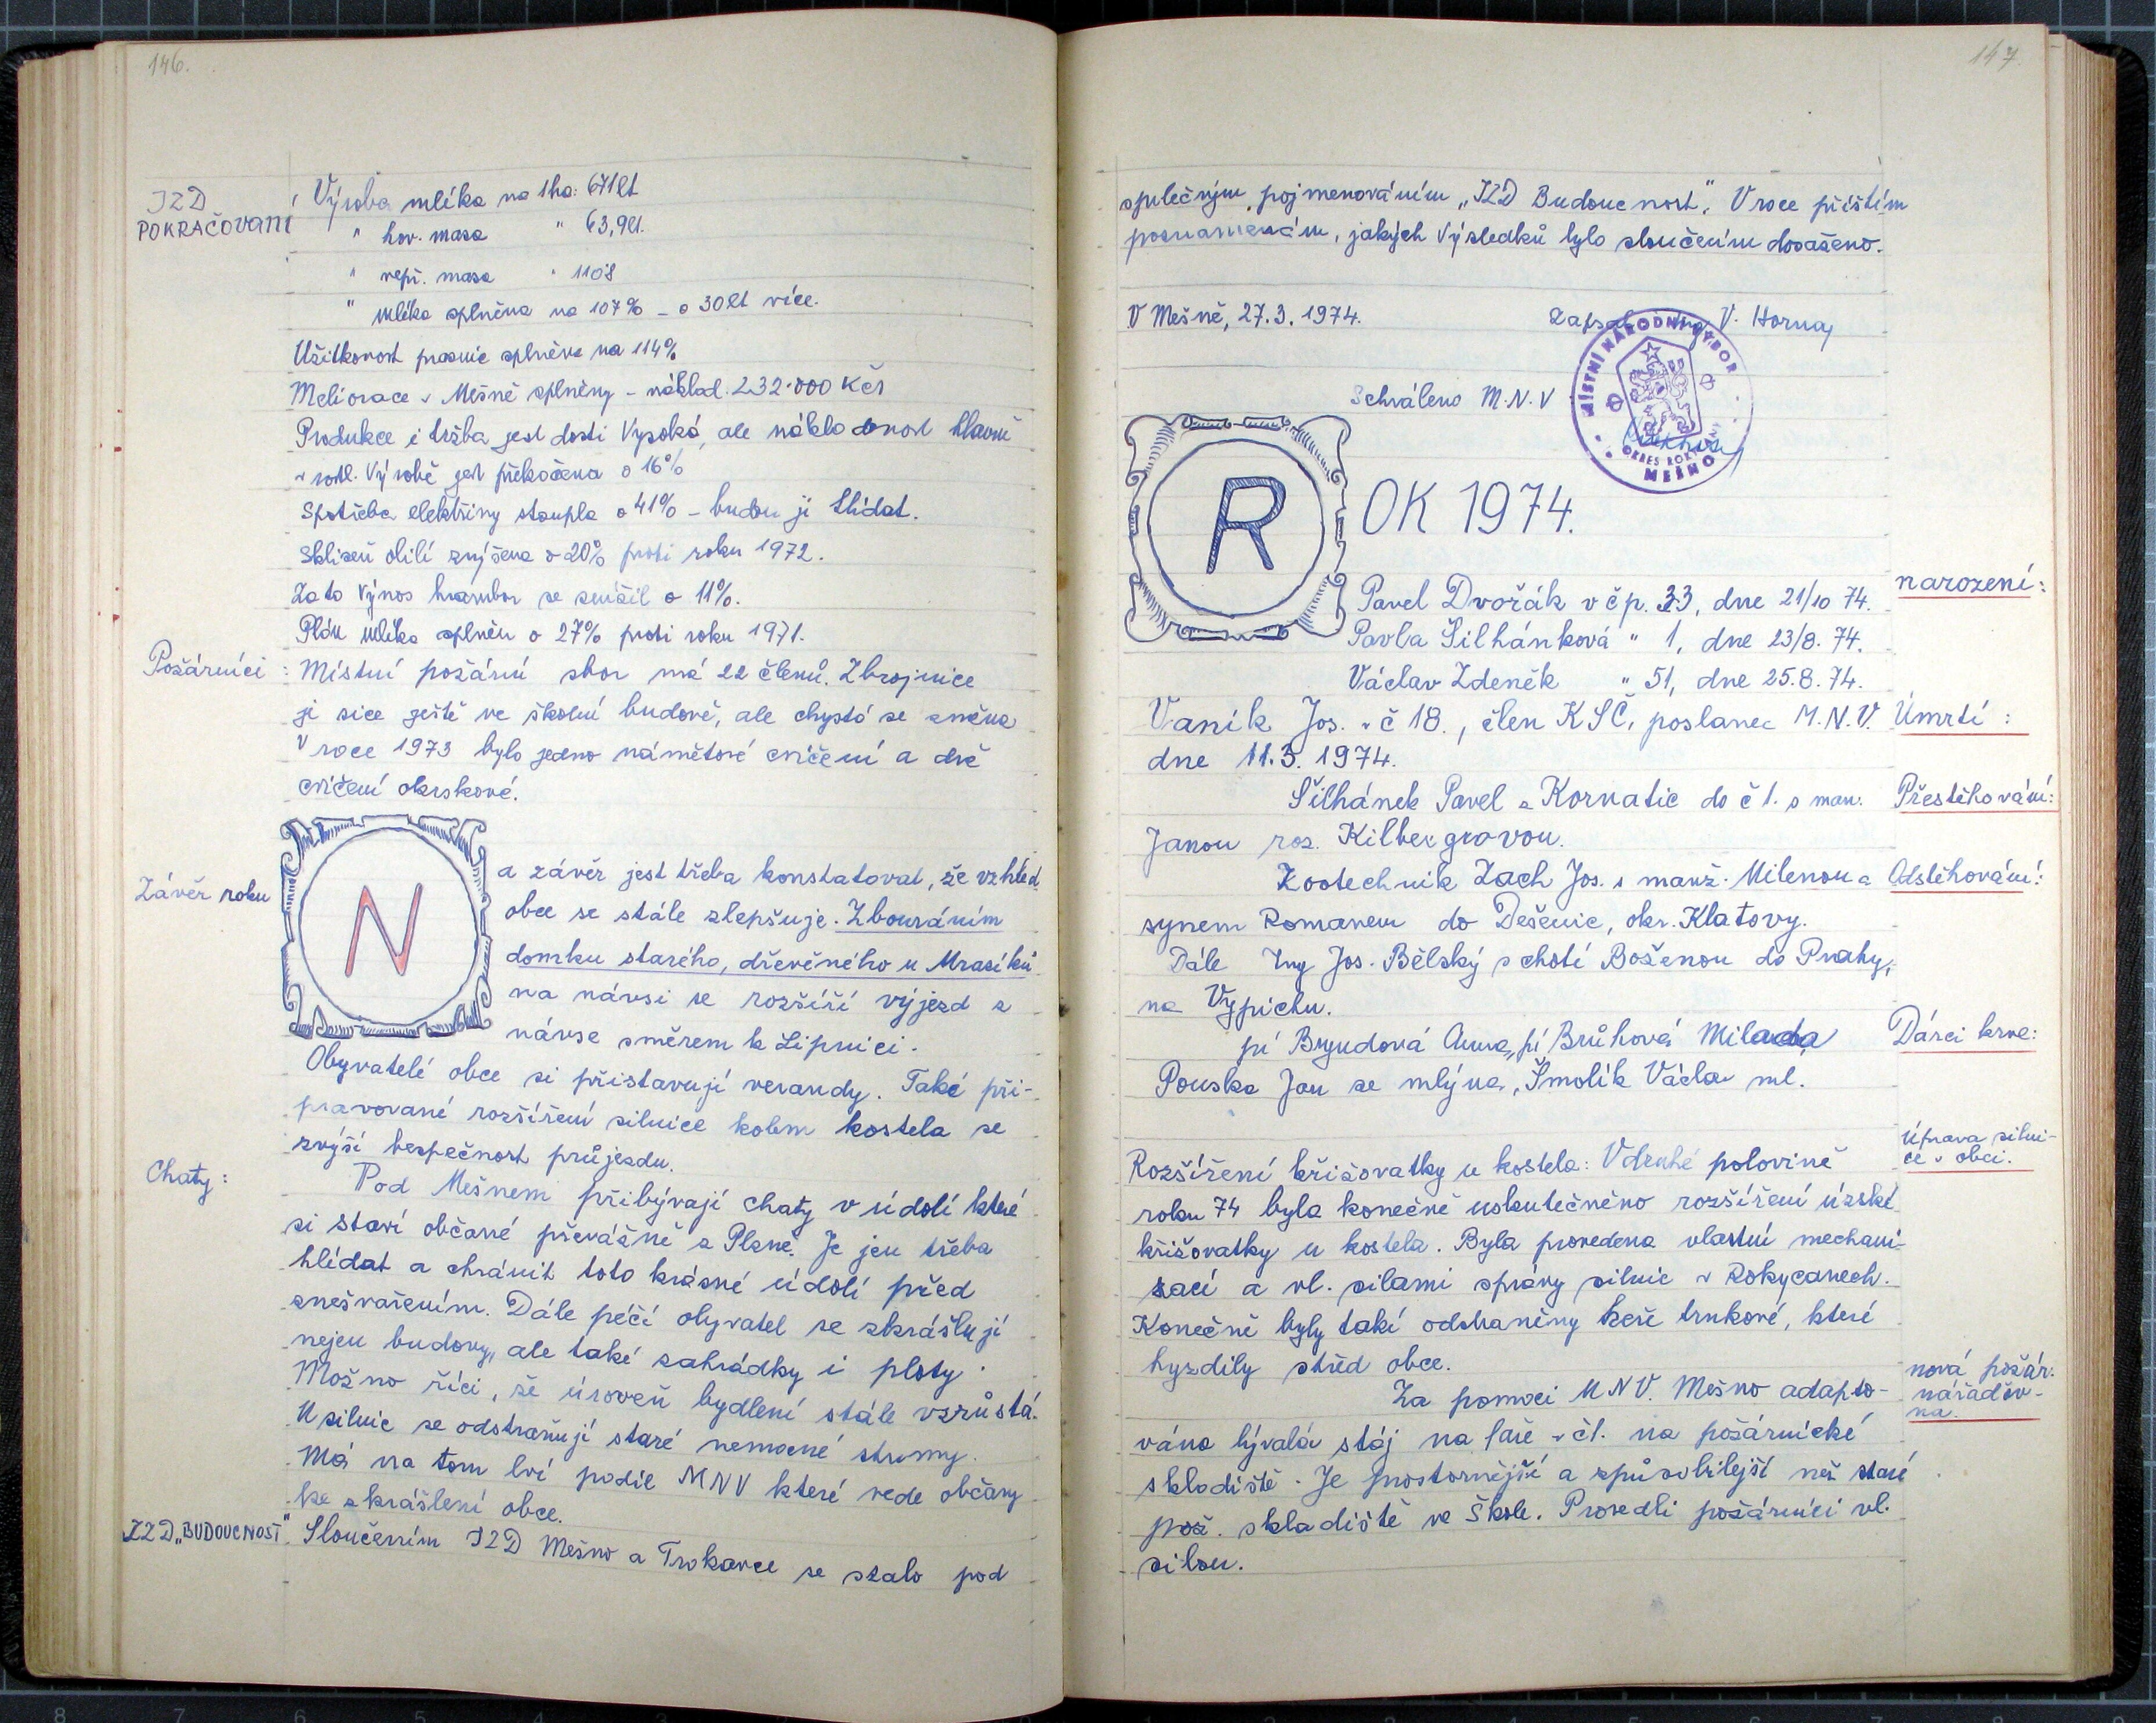 146.
JZD
POKRAČOVANÍ
Výroba mlíka na 1ha: 671lt
" hov. masa " 63,9lt.
" vepř. masa " 110'8
" mlíka splněna na 107% - o 30lt více.
Užitkovost prasnic splněna na 114%
Meliorace v Mešně splněny - náklad. 232.000 Kčs
Produkce i tržba jest dosti vysoká, ale nákladnost hlavně
v rostl. výrobě jest překočena o 16%
Spotřeba elektřiny stoupla o 41% - budou ji hlídat.
Sklizeň obilí zvýšena o 20% proti roku 1972.
Zato výnos brambor se snížil o 11%.
Plán mlíka splněn o 27% proti roku 1971.
Požárníci : Místní požární sbor má 22 členů. Zbrojnice
je sice ještě ve školní budově, ale chystá se změna
V roce 1973 bylo jedno námětové cvičení a dvě
cvičení okrskové.
Závěr roku
N
a závěr jest třeba konstatovat, že vzhled
obce se stále zlepšuje. Zbouráním
domku starého, dřevěného u Mrazíků
na návsi se rozšíří výjezd z
návse směrem k Lipnici.
Obyvatelé obce si přistavují verandy. Také při-
pravované rozšíření silnice kolem kostela se
zvýší bezpečnost průjezdu.
Chaty:
Pod Mešnem přibývají chaty v údolí které
si staví občané převážně z Plzně. Je jen třeba
hlídat a chránit toto krásné údolí před
znešvařením. Dále péčí obyvatel se zkrášlují
nejen budovy, ale také zahrádky i ploty.
Možno říci, že úroveň bydlení stále vzrůstá.
U silnic se odstraňují staré nemocné stromy.
Má na tom lví podíl MNV které vede občany
ke zkrášlení obce.
JZD „BUDOUCNOST" Sloučením JZD Mešno a Trokavce se stalo pod
147.
společným pojmenováním „JZD Budoucnost". V roce příštím
poznamenám, jakých výsledků bylo sloučením dosaženo.
V Mešně, 27.3. 1974.
Zapsal ing V. Horna
Schváleno M.N.V
MÍSTNÍ NÁRODNÍ VÝBOR
OKRES ROKYCANY
MEŠNO
R
OK 1974.
narození:
Pavel Dvořák v č p. 33, dne 21/10 74.
Pavla Šilhánková " 1, dne 23/8. 74.
Václav Zdeněk " 51, dne 25.8. 74.
Vaník Jos. v č 18., člen KSČ, poslanec M.N.V. Úmrtí :
dne 11.3. 1974.
Šilhánek Pavel z Kornatic do č 1. s man. Přestěhování:
Janou roz. Kilbergrovou.
Zootechnik Zach Jos. s manž. Milenou a Odstěhování:
synem Romanem do Dešenic, okr. Klatovy.
Dále Ing Jos. Bělský s chotí Boženou do Prahy,
na Vypichu.
pí Bryndová Anna, pí Brůhová Milada Dárci krve:
Pouska Jan ze mlýna, Šmolík Václav ml.
Úprava silni-
ce v obci.
Rozšíření křižovatky u kostela: V druhé polovině
roku 74 byla konečně uskutečněno rozšíření úzské
křižovatky u kostela. Byla provedena vlastní mechani-
zací a vl. silami správy silnic v Rokycanech.
Konečně byly také odstraněny keře trnkové, které
hyzdily střed obce.
nová požár.
nářaďov-
na.
Za pomoci MNV. Mešno adapto-
vána bývalá stáj na faře v č1. na požárnické
skladiště. Je prostornější a způsobilejší než staré
pož. skladiště ve škole. Provedli požárníci vl.
silou.